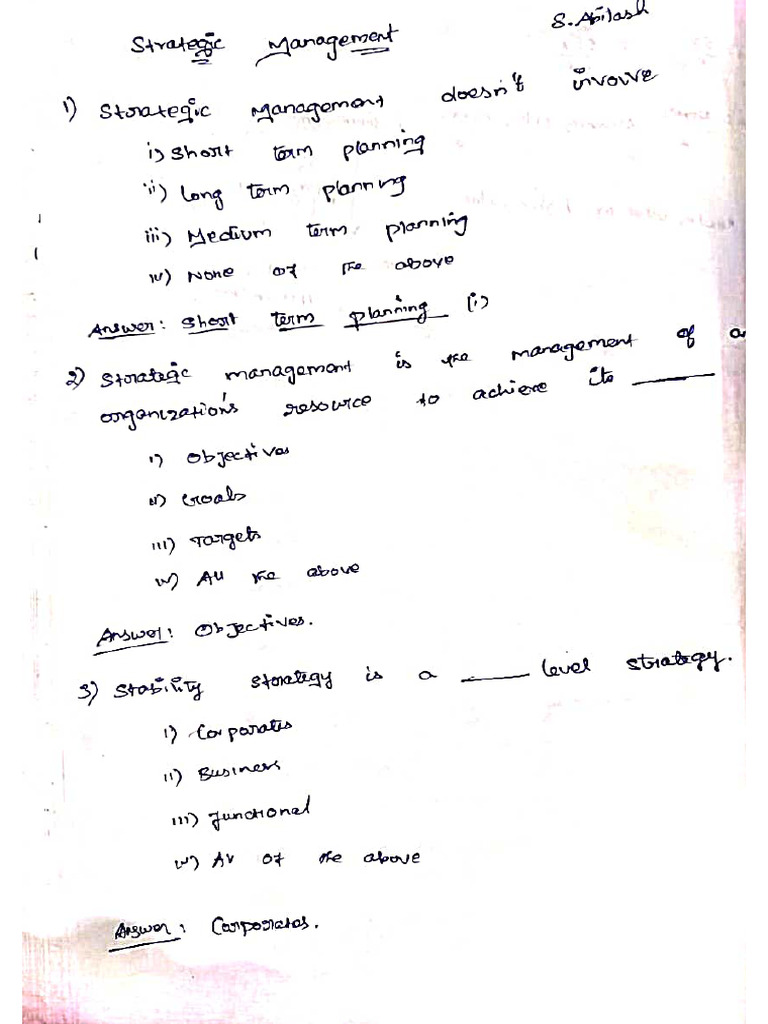 S. Abilash
Strategic Management
1) Strategic Management doesn't involve
i) Short term planning
ii) Long term planning
iii) Medium term planning
iv) None of the above
Answer: Short term planning (i)
2) Strategic management is the management of a
organization's resource to achieve its ______
i) Objectives
ii) Goals
iii) Targets
iv) All the above
Answer: Objectives.
3) Stability Strategy is a ______ level strategy.
i) Corporates
ii) Business
iii) Functional
iv) All of the above
Answer: Corporates.